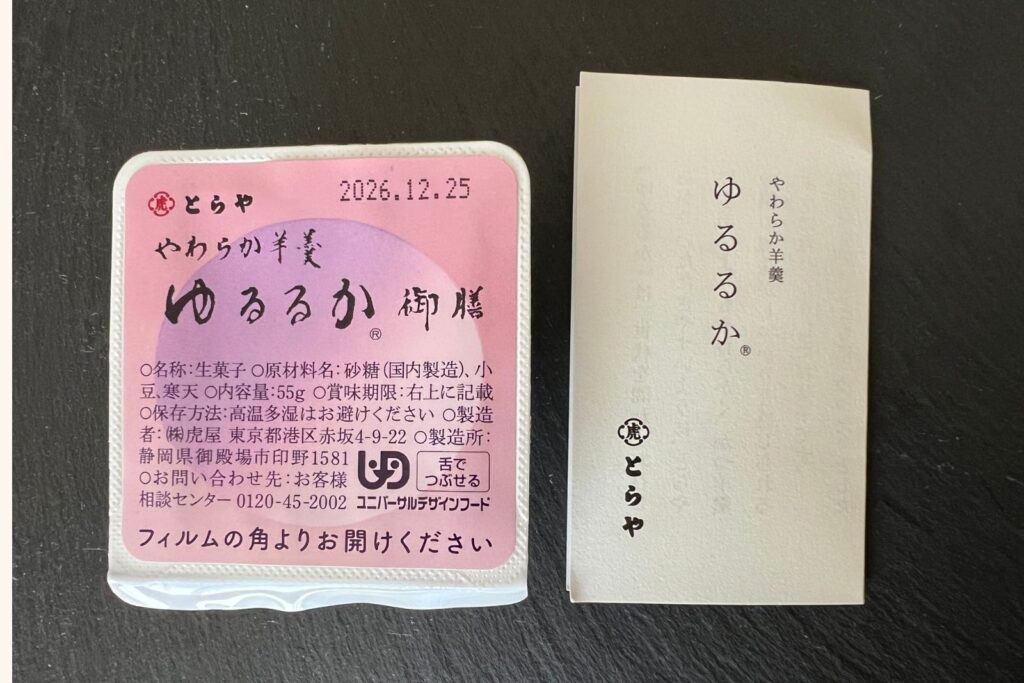 虎 とらや
2026.12.25
やわらか羊羹
ゆるるか® 御膳
○名称:生菓子 ○原材料名:砂糖(国内製造)、小
豆、寒天 ○内容量:55g ○賞味期限:右上に記載
○保存方法:高温多湿はお避けください ○製造
者:㈱虎屋 東京都港区赤坂4-9-22 ○製造所:
静岡県御殿場市印野1581
○お問い合わせ先:お客様
相談センター 0120-45-2002
UDF
舌で
つぶせる
ユニバーサルデザインフード
フィルムの角よりお開けください
やわらか羊羹
ゆるるか®
虎 とらや